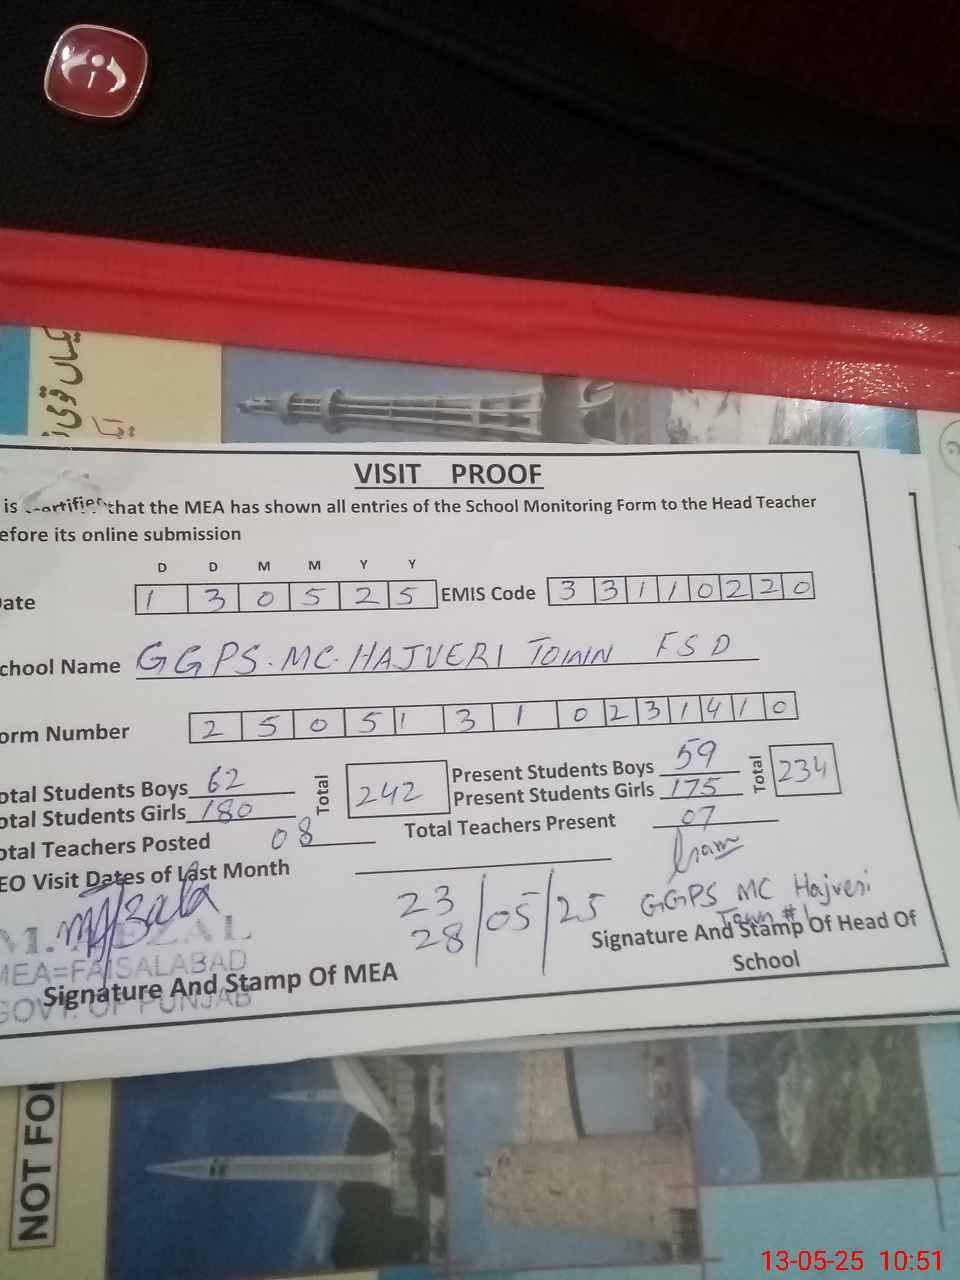 یکساں قومی
VISIT PROOF
is certified that the MEA has shown all entries of the School Monitoring Form to the Head Teacher
efore its online submission
D D M M Y Y
ate 1 3 0 5 2 5 EMIS Code 3 3 1 1 0 2 2 0
chool Name GGPS. MC. HAJVERI TOWN FSD
orm Number 2 5 0 5 1 3 1 0 2 3 1 4 1 0
otal Students Boys 62 Total 242 Present Students Boys 59 Total 234
otal Students Girls 180 Present Students Girls 175
otal Teachers Posted 08 Total Teachers Present 07
EO Visit Dates of Last Month
23
28 /05/25
GGPS MC Hajveri
Town # 1
M. AFZAL
MEA=FAISALABAD
GOVT. OF PUNJAB
Signature And Stamp Of MEA
Signature And Stamp Of Head Of
School
NOT FO
13-05-25 10:51